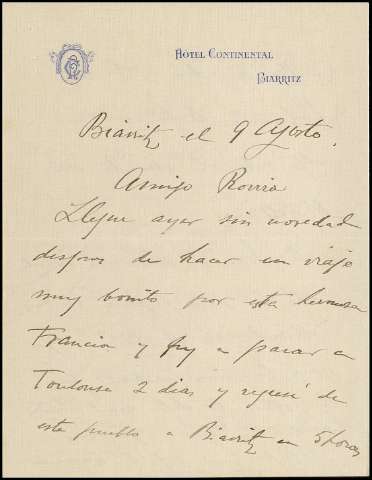 HÔTEL CONTINENTAL
BIARRITZ
Biarritz el 9 Agosto.
Amigo Rovira
Llegue ayer sin novedad
despues de hacer un viaje
muy bonito por esta hermosa
Francia y fuy a parar a
Toulouse 2 dias y regresé de
este pueblo a Biarritz en 5 horas